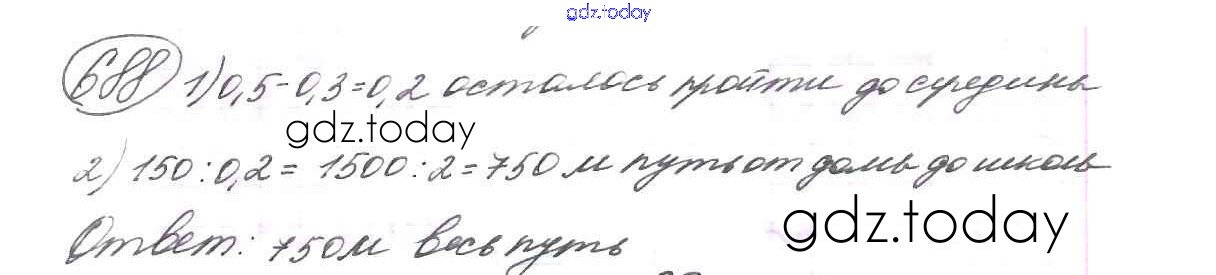 gdz.today
688 1) 0,5-0,3=0,2 осталось пройти до середины
gdz.today
2) 150:0,2= 1500:2=750 м путь от дома до школы
gdz.today
Ответ: 750м весь путь